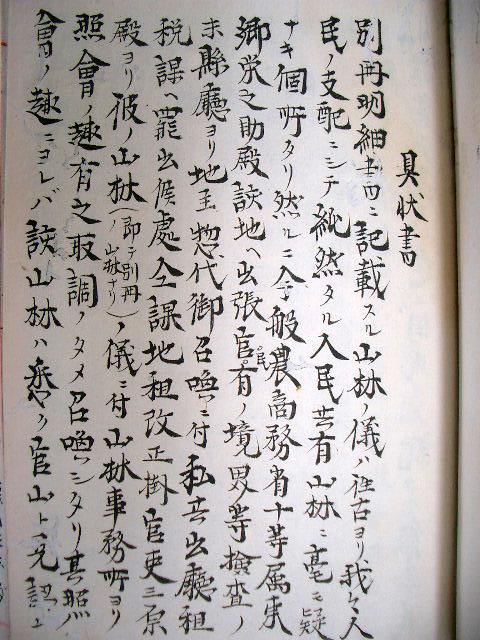 具状書
別冊明細書面ニ記載スル山林ノ儀ハ往古ヨリ我々人
民ノ支配ニシテ純然タル人民共有山林ニ毫モ疑
ナキ個所タリ然ルニ今般農商務省十等属東
郷栄之助殿該地ヘ出張官民有ノ境界等撿査ノ
末縣廳ヨリ地主惣代御召喚ニ付私共出廳租
税課ヘ罷出候處仝課地租改正掛官吏三原
殿ヨリ彼ノ山林(即チ別冊ノ山林ナリ)ノ儀ニ付山林事務所ヨリ
照會ノ趣有之取調ノタメ召喚シタリ其照
會ノ趣ニヨレバ該山林ハ全ク官山ト見認ム